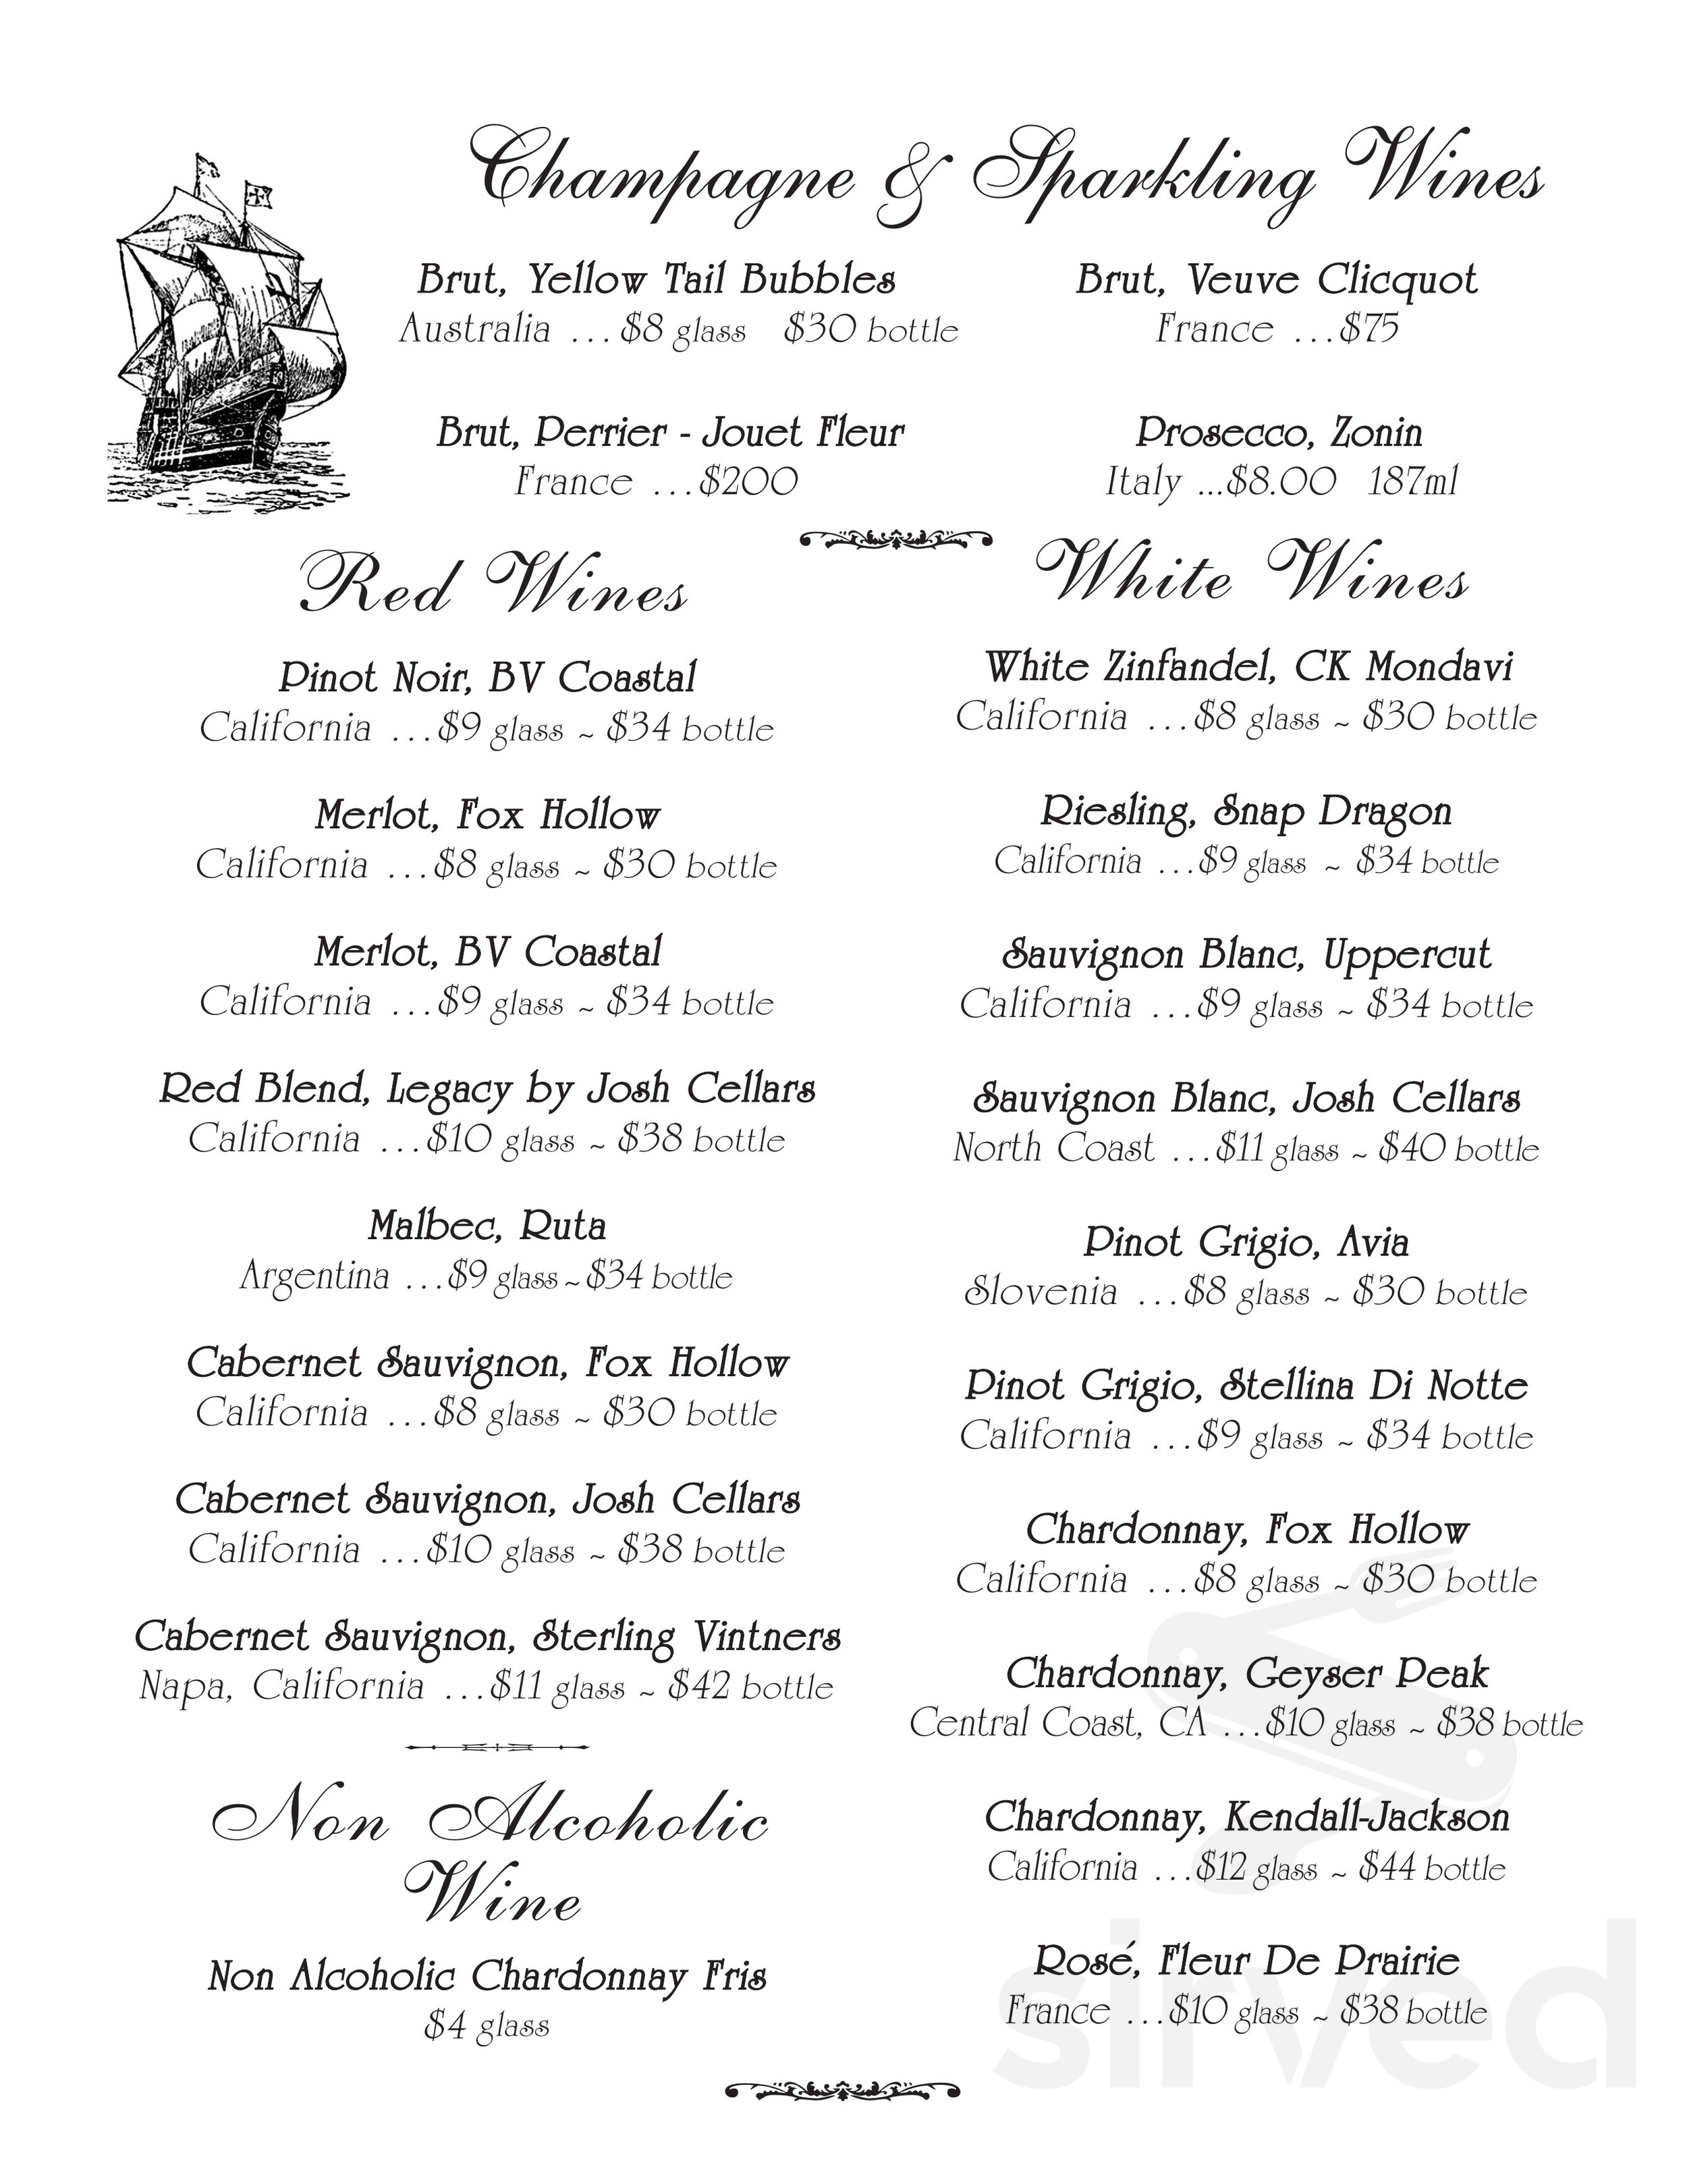 Champagne & Sparkling Wines
Brut, Yellow Tail Bubbles
Australia ...$8 glass $30 bottle
Brut, Veuve Clicquot
France ...$75
Brut, Perrier - Jouet Fleur
France ...$200
Prosecco, Zonin
Italy ...$8.00 187ml
Red Wines
Pinot Noir, BV Coastal
California ...$9 glass ~ $34 bottle
Merlot, Fox Hollow
California ...$8 glass ~ $30 bottle
Merlot, BV Coastal
California ...$9 glass ~ $34 bottle
Red Blend, Legacy by Josh Cellars
California ...$10 glass ~ $38 bottle
Malbec, Ruta
Argentina ...$9 glass ~ $34 bottle
Cabernet Sauvignon, Fox Hollow
California ...$8 glass ~ $30 bottle
Cabernet Sauvignon, Josh Cellars
California ...$10 glass ~ $38 bottle
Cabernet Sauvignon, Sterling Vintners
Napa, California ...$11 glass ~ $42 bottle
Non Alcoholic
Wine
Non Alcoholic Chardonnay Fris
$4 glass
White Wines
White Zinfandel, CK Mondavi
California ...$8 glass ~ $30 bottle
Riesling, Snap Dragon
California ...$9 glass ~ $34 bottle
Sauvignon Blanc, Uppercut
California ...$9 glass ~ $34 bottle
Sauvignon Blanc, Josh Cellars
North Coast ...$11 glass ~ $40 bottle
Pinot Grigio, Avia
Slovenia ...$8 glass ~ $30 bottle
Pinot Grigio, Stellina Di Notte
California ...$9 glass ~ $34 bottle
Chardonnay, Fox Hollow
California ...$8 glass ~ $30 bottle
Chardonnay, Geyser Peak
Central Coast, CA ...$10 glass ~ $38 bottle
Chardonnay, Kendall-Jackson
California ...$12 glass ~ $44 bottle
Rosé, Fleur De Prairie
France ...$10 glass ~ $38 bottle
sirved